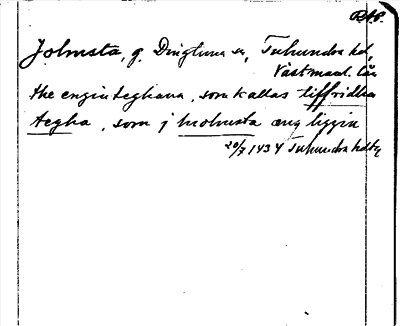 RAP.
Jolmsta, g. Dingtuna sn, Tuhundra hd,
Västmanl. län
the enginteghana, som kallas liffridha
tegha, som j holmsta æng liggia
20/7 1434 Tuhundra hdtg